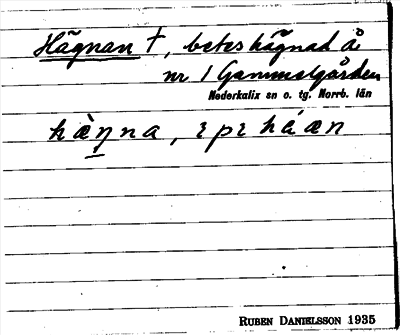 Hägnan †, beteshägnad å
nr 1 Gammelgården
Nederkalix sn o. tg. Norrb. län
hæ̀ŋna, ɪpɪ háæn
RUBEN DANIELSSON 1935